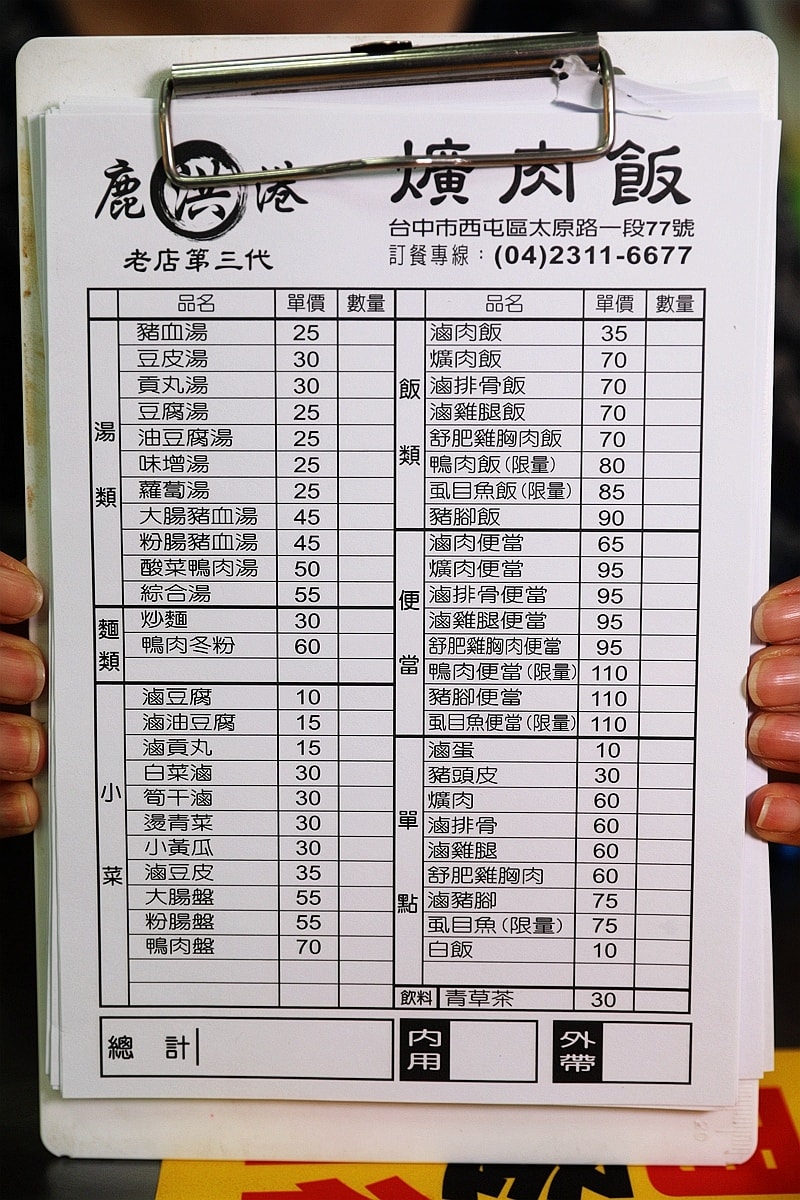 鹿洪港
老店第三代
爌肉飯
台中市西屯區太原路一段77號
訂餐專線：(04)2311-6677
品名 單價 數量
湯類
豬血湯 25
豆皮湯 30
貢丸湯 30
豆腐湯 25
油豆腐湯 25
味增湯 25
蘿蔔湯 25
大腸豬血湯 45
粉腸豬血湯 45
酸菜鴨肉湯 50
綜合湯 55
麵類
炒麵 30
鴨肉冬粉 60
小菜
滷豆腐 10
滷油豆腐 15
滷貢丸 15
白菜滷 30
筍干滷 30
燙青菜 30
小黃瓜 30
滷豆皮 35
大腸盤 55
粉腸盤 55
鴨肉盤 70
品名 單價 數量
飯類
滷肉飯 35
爌肉飯 70
滷排骨飯 70
滷雞腿飯 70
舒肥雞胸肉飯 70
鴨肉飯(限量) 80
虱目魚飯(限量) 85
豬腳飯 90
便當
滷肉便當 65
爌肉便當 95
滷排骨便當 95
滷雞腿便當 95
舒肥雞胸肉便當 95
鴨肉便當(限量) 110
豬腳便當 110
虱目魚便當(限量) 110
單點
滷蛋 10
豬頭皮 30
爌肉 60
滷排骨 60
滷雞腿 60
舒肥雞胸肉 60
滷豬腳 75
虱目魚(限量) 75
白飯 10
飲料 青草茶 30
總計
內用
外帶